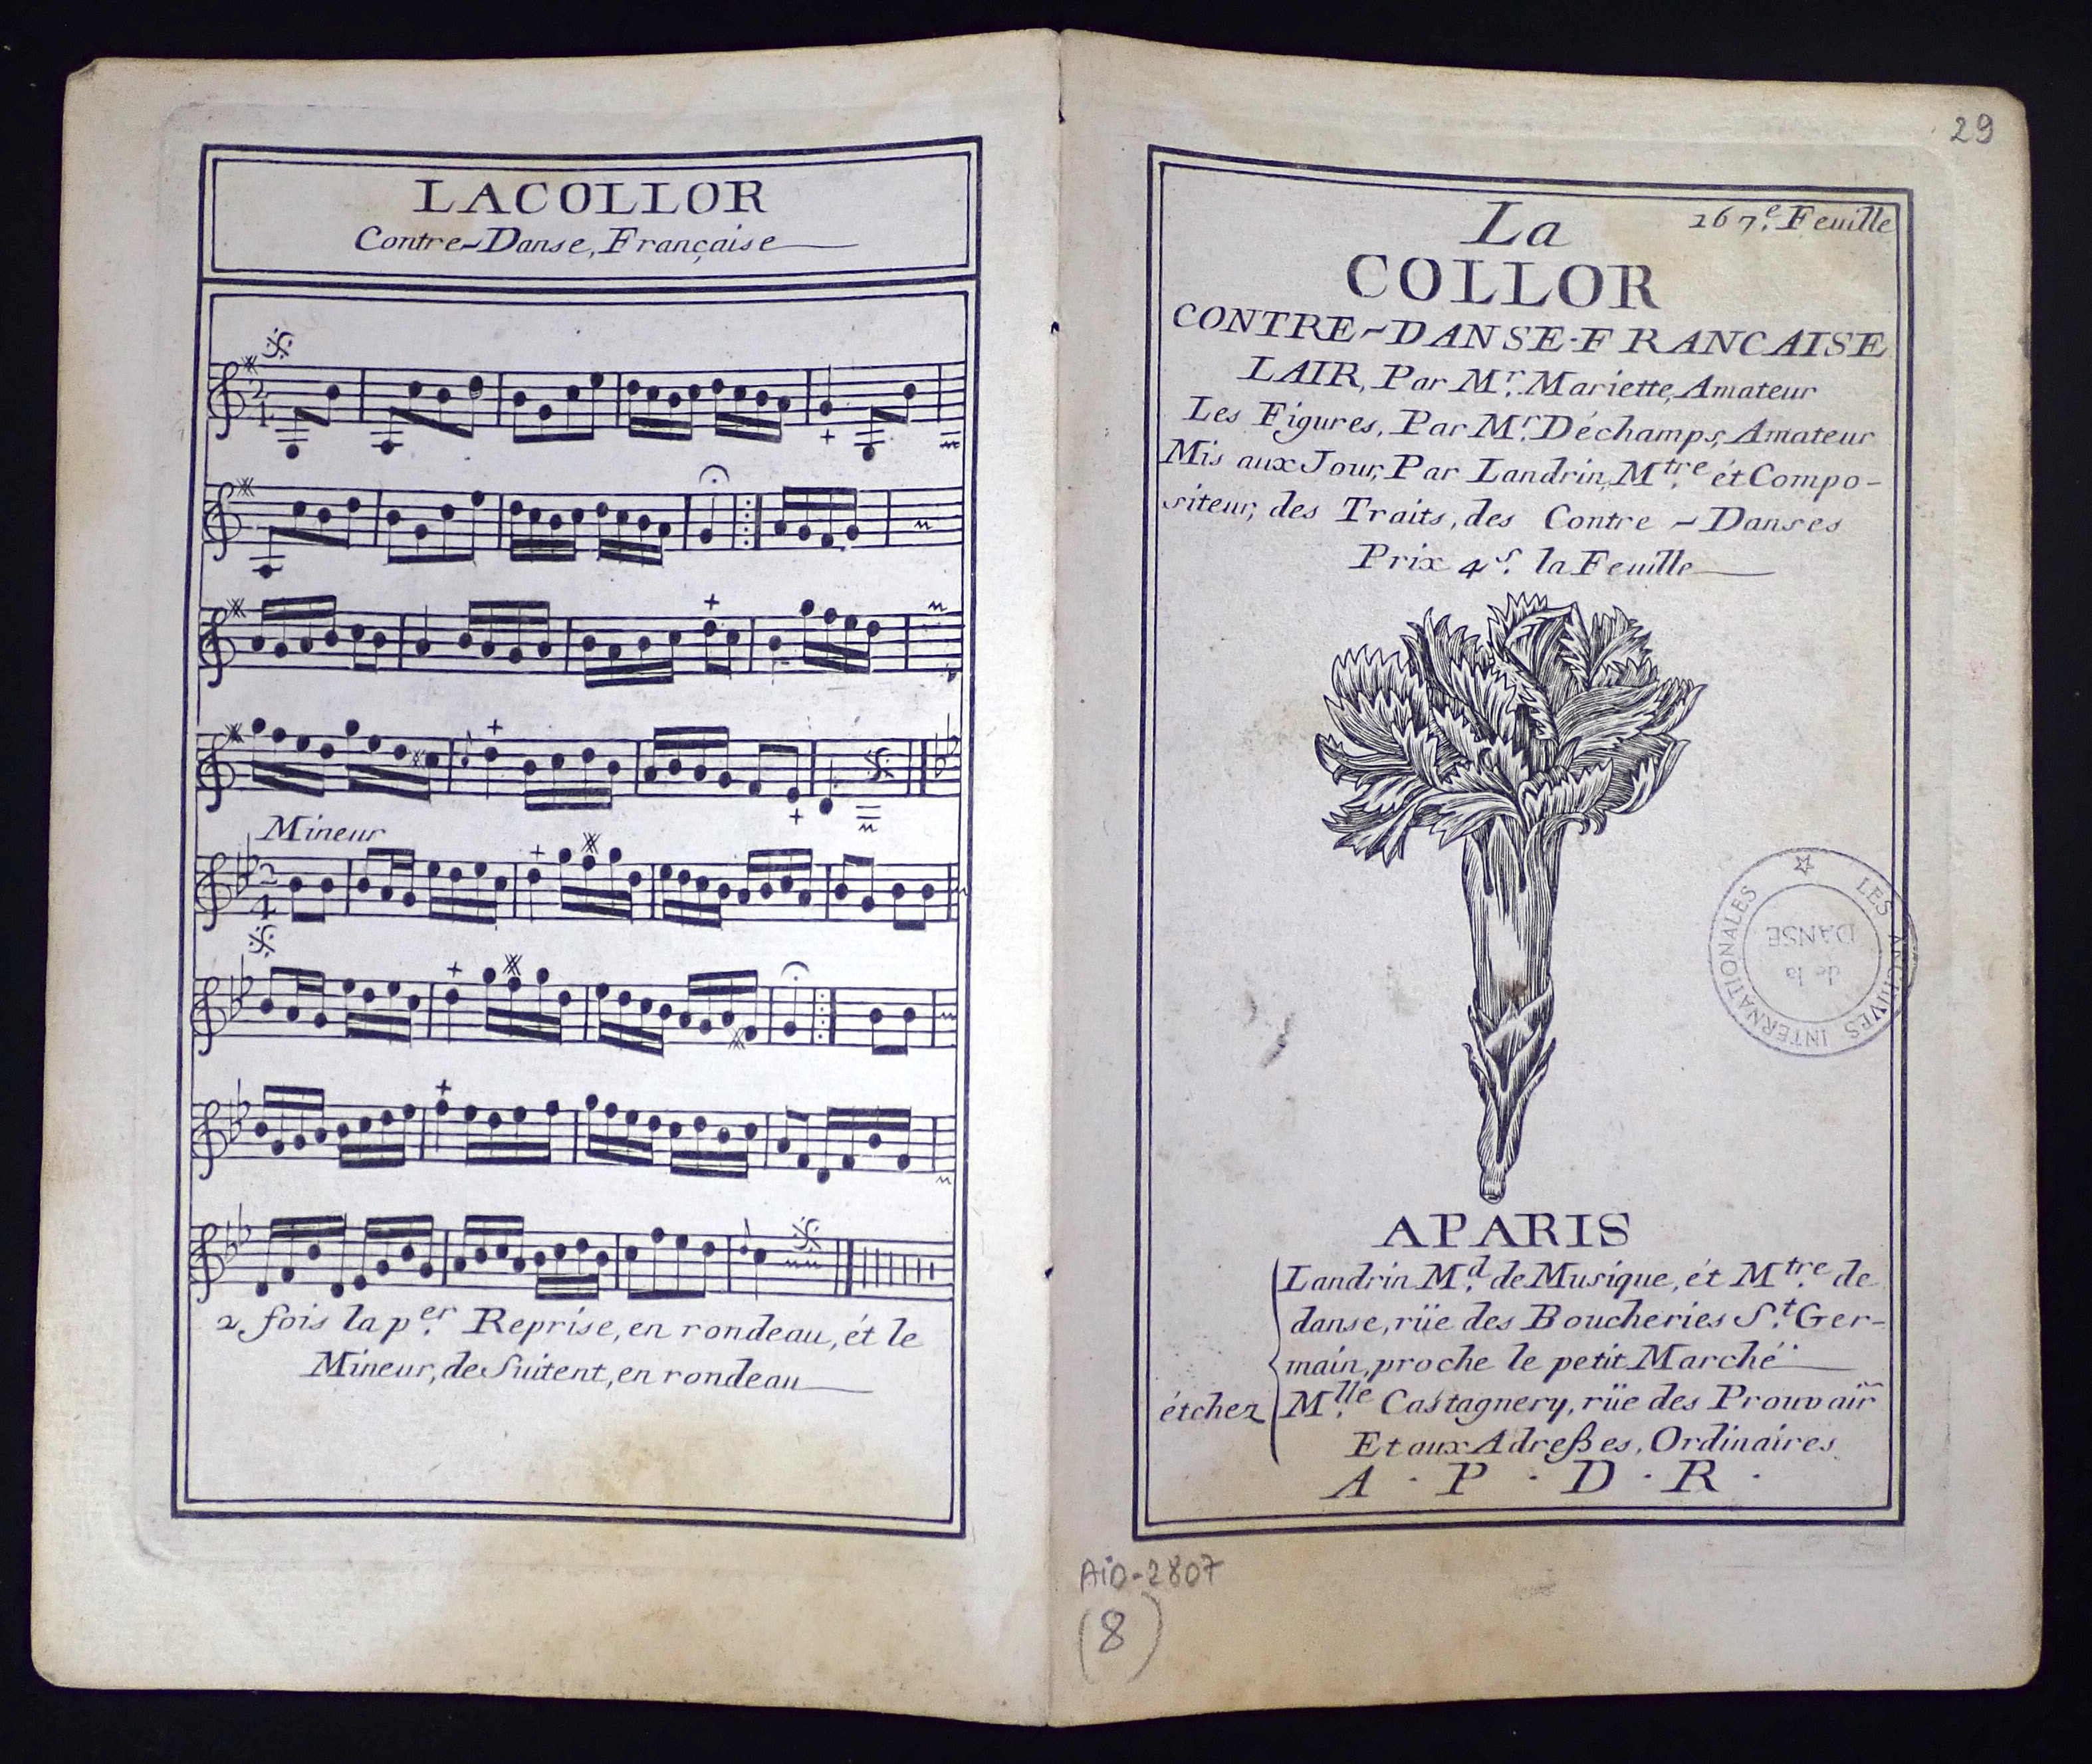 LACOLLOR
Contre-Danse, Française
Mineur
2 fois la per. Reprise, en rondeau, ét le
Mineur, de Suitent, en rondeau
29
La
167.e Feuille
COLLOR
CONTRE-DANSE-FRANCAISE
LAIR, Par Mr. Mariette, Amateur
Les Figures, Par Mr. Déchamps, Amateur
Mis aux Jour, Par Landrin, Mtre. ét Compo-
siteur, des Traits, des Contre-Danses
Prix 4s. la Feuille
LES ARCHIVES INTERNATIONALES
de la
DANSE
APARIS
Landrin Md. de Musique, ét Mtre. de
danse, rüe des Boucheries St. Ger-
main, proche le petit Marché
étchez Mlle. Castagnery, rüe des Prouvair
Et aux Adreßes, Ordinaires
A · P · D · R ·
AiD-2807
(8)